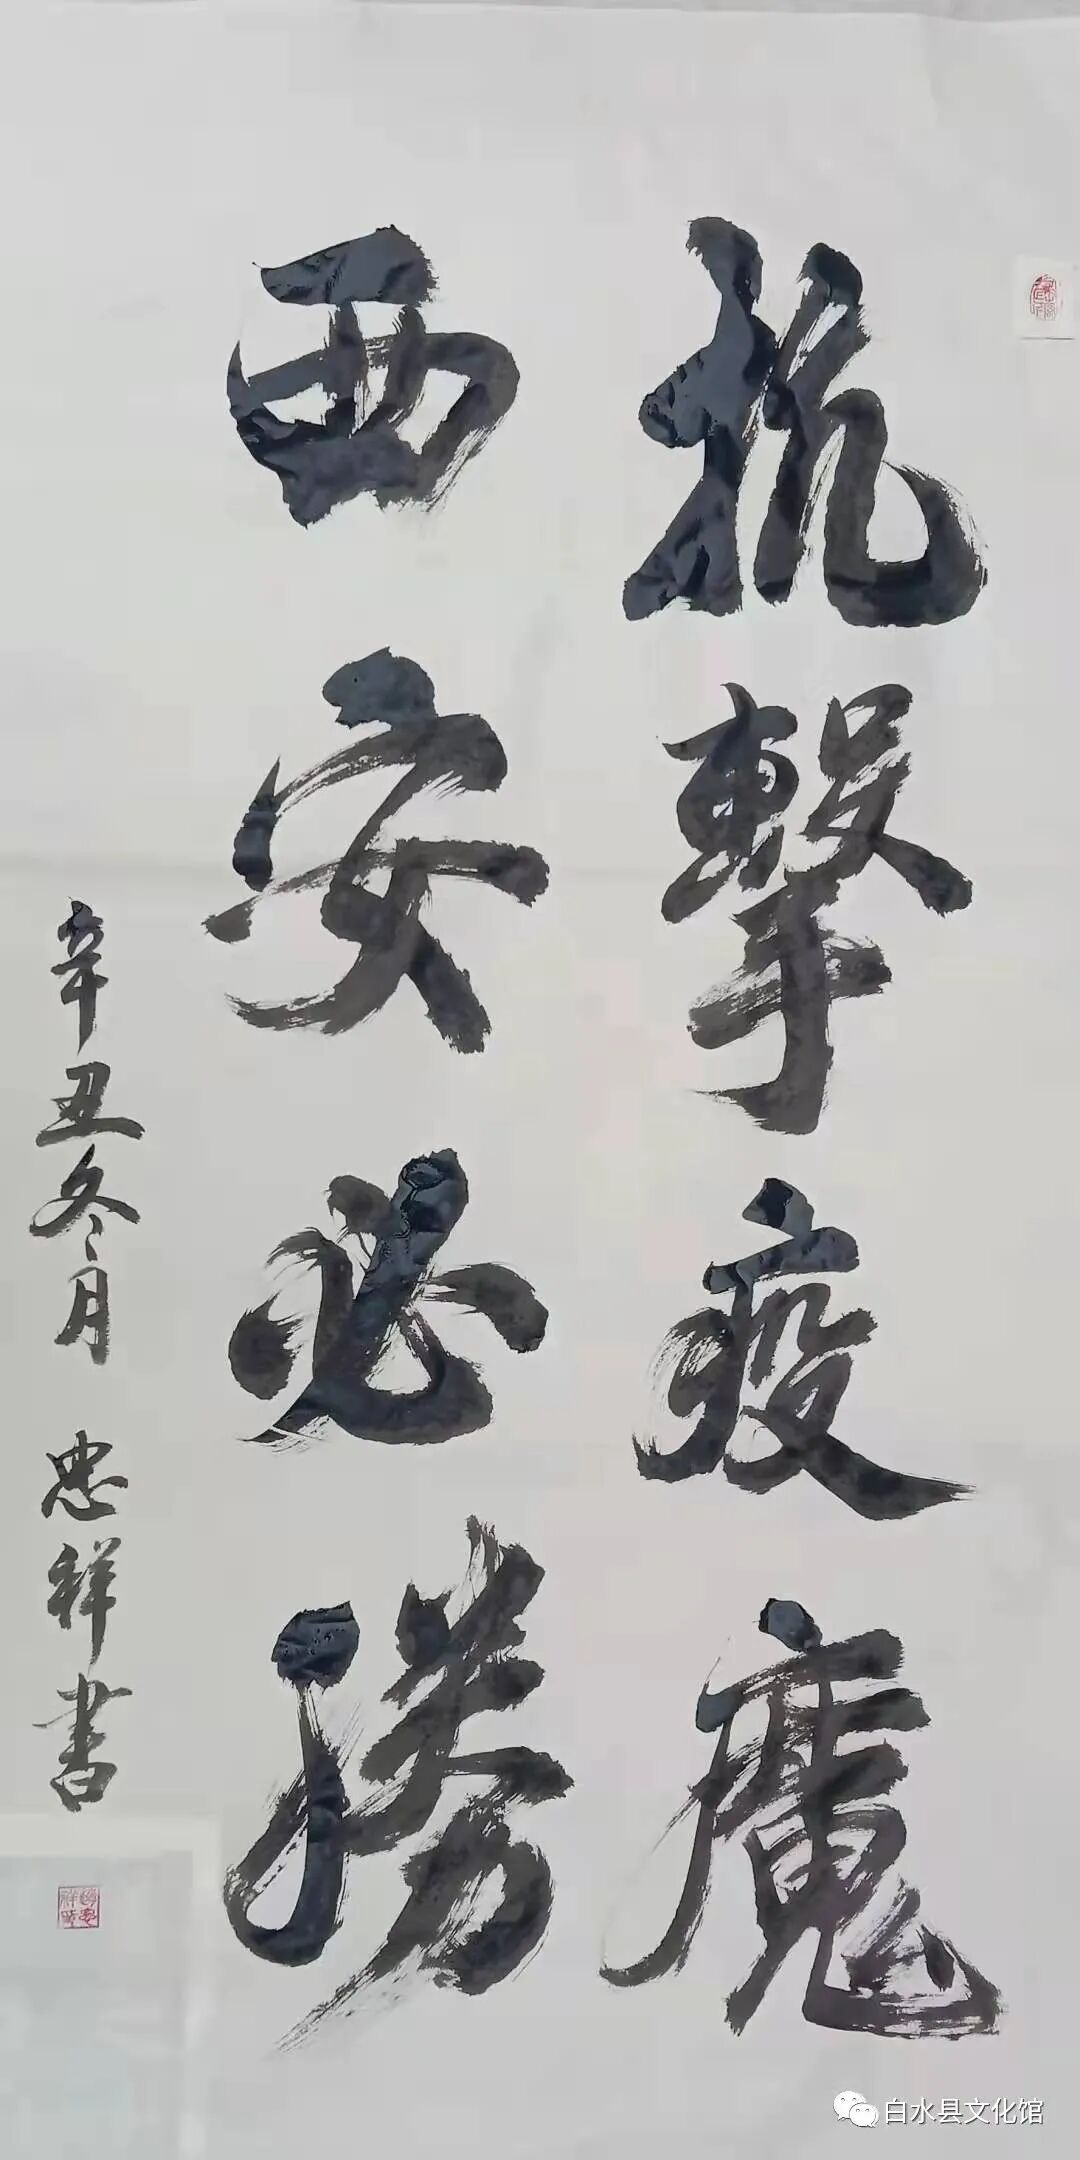 抗擊疫魔
西安必勝
辛丑冬月 忠祥書
白水县文化馆